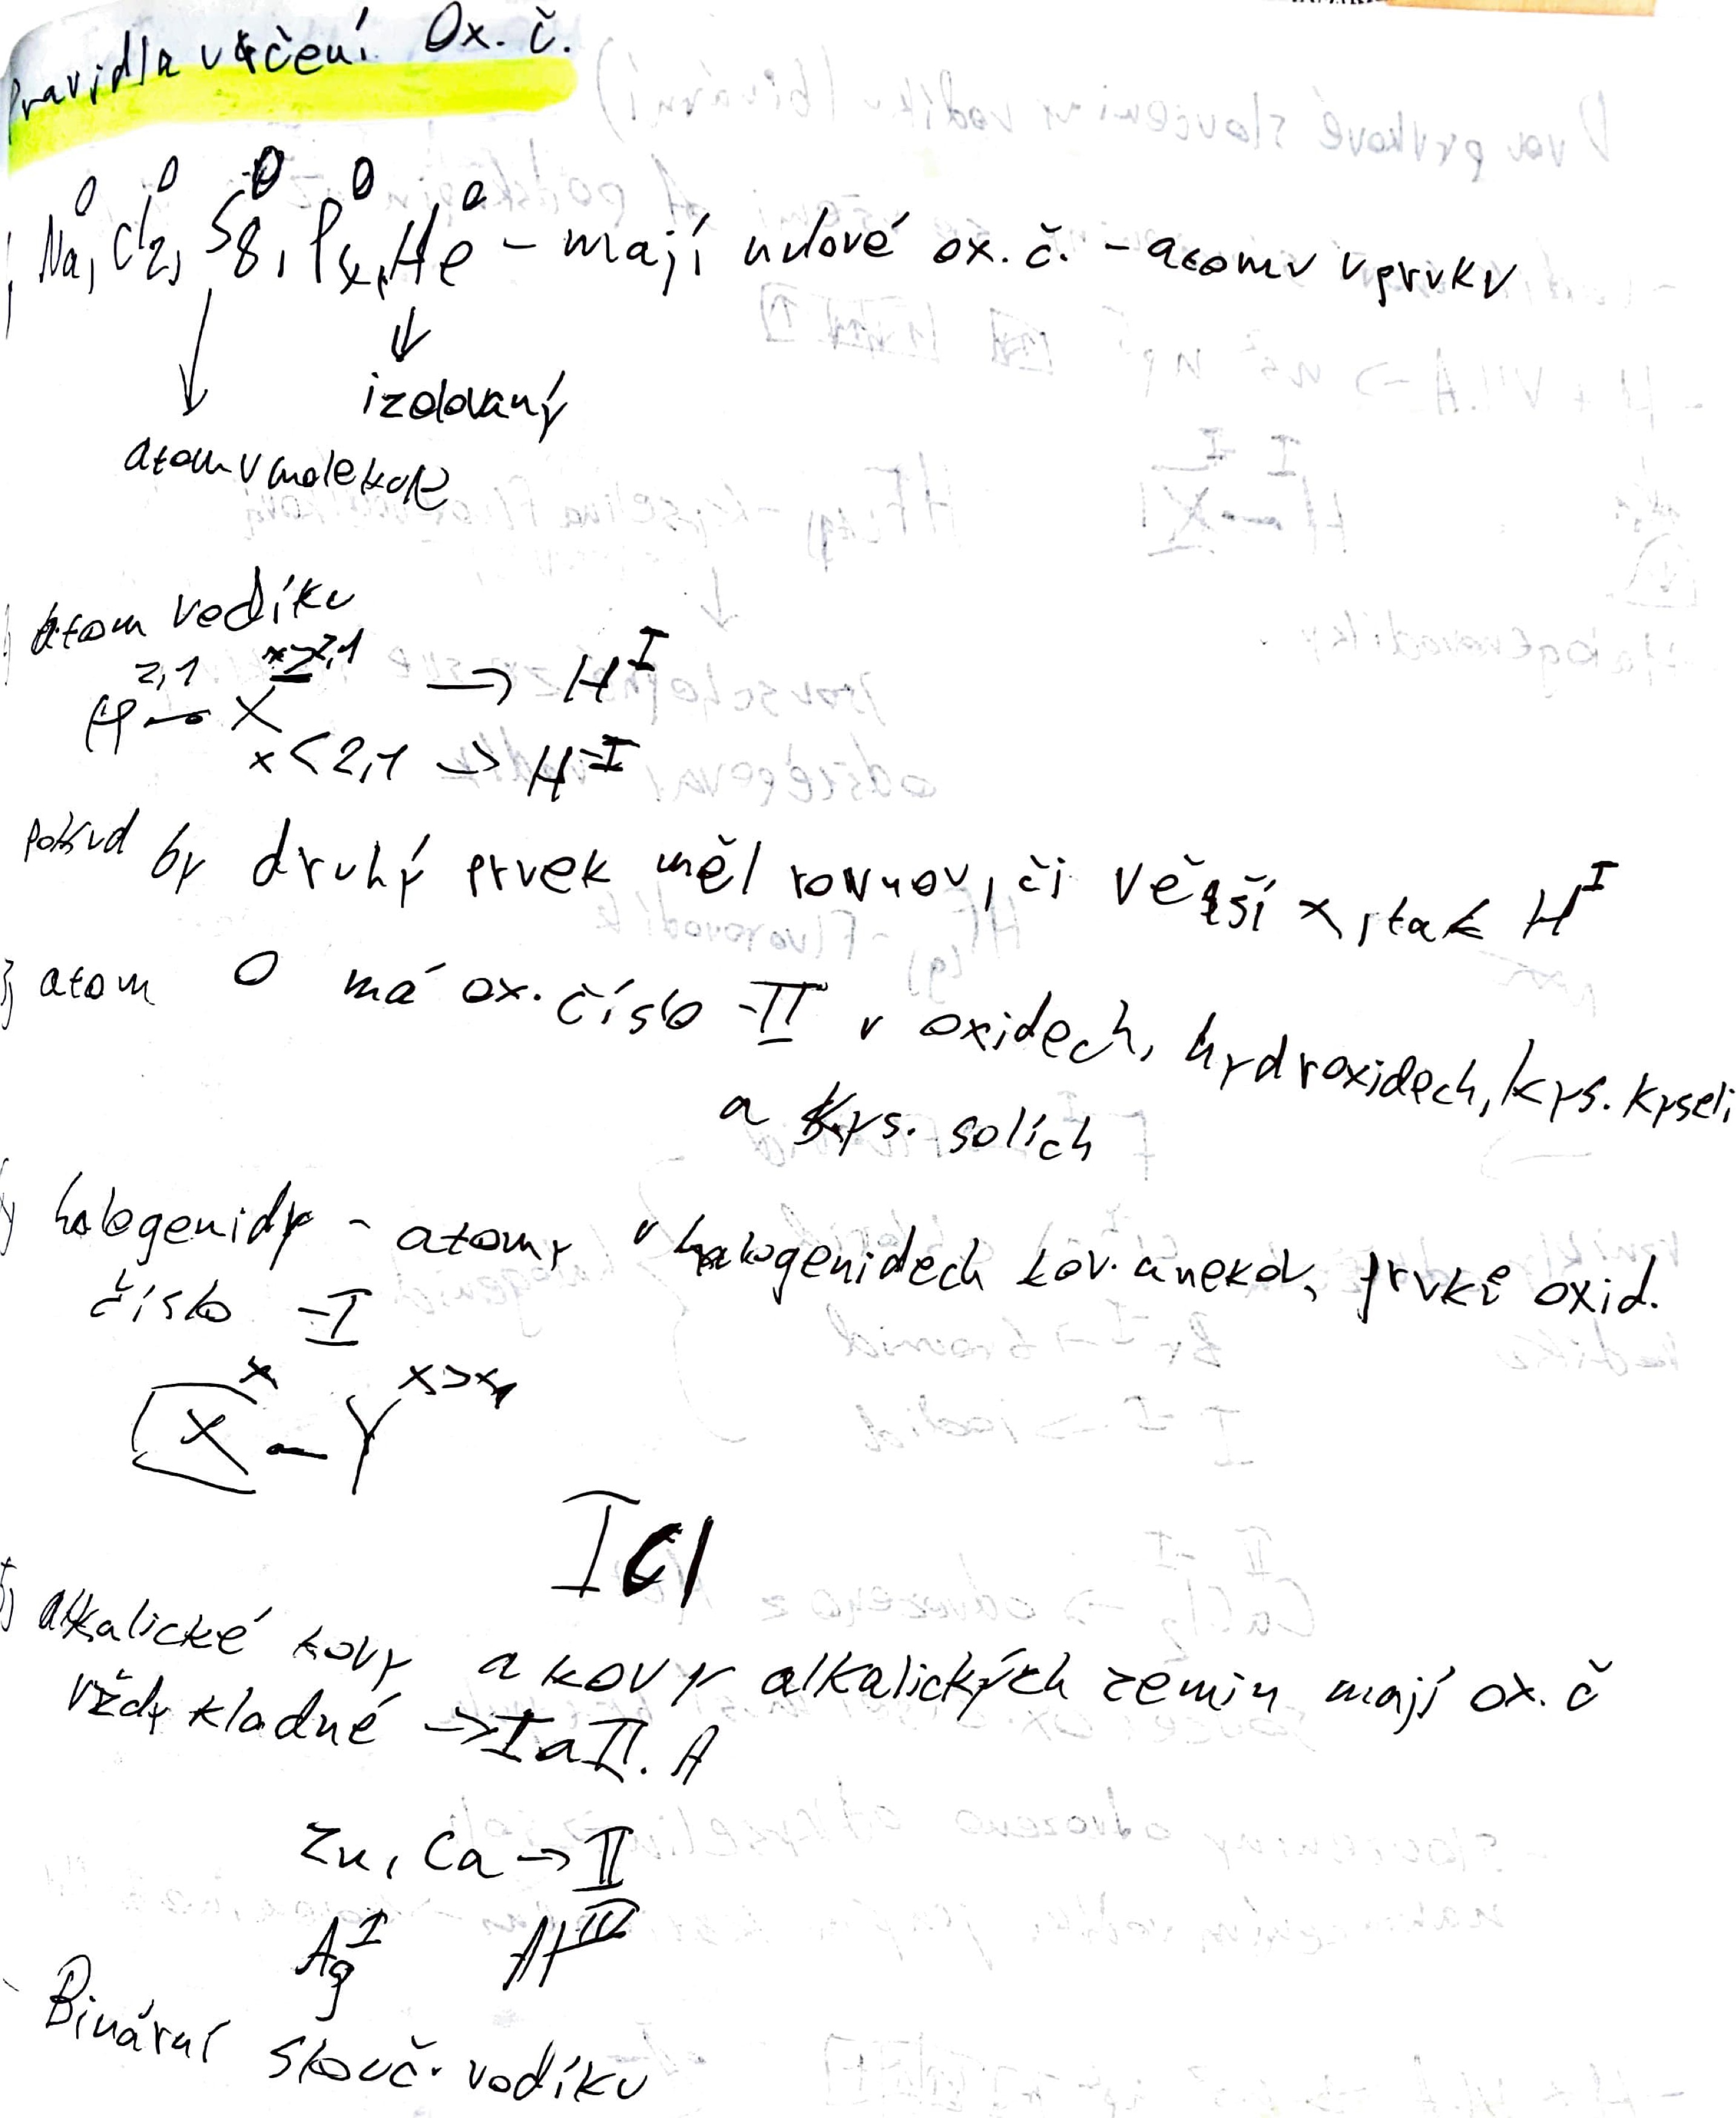 Pravidla určení Ox. č.
0 0 0 0 0
Na, Cl2, S8, P4, He - mají nulové ox. č. - atomu v prvku
izolovaný
atom v molekule
atom vodíku
2,1 x≥2,1 → H^I
H — X
x < 2,1 → H^-I
pokud by druhý prvek měl rovnou, či větší x, tak H^I
3) atom O má ox. číslo -II v oxidech, hydroxidech, kys. kyseli
a kys. solích
halogenidy - atomy v halogenidech kov. a nekov. prvků oxid.
číslo -I
x x>x
X - Y
ICl
5) alkalické kovy a kovy alkalických zemin mají ox. č
vždy kladné → I a II. A
Zn, Ca → II
Ag^I
Binární slouč. vodíku